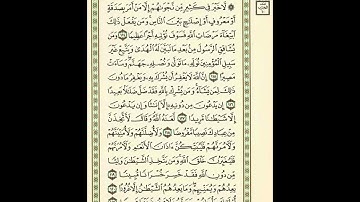 لَّا خَيْرَ فِي كَثِيرٍ مِّن نَّجْوَىٰهُمْ إِلَّا مَنْ أَمَرَ بِصَدَقَةٍ
أَوْ مَعْرُوفٍ أَوْ إِصْلَٰحٍۭ بَيْنَ ٱلنَّاسِ وَمَن يَفْعَلْ ذَٰلِكَ
ٱبْتِغَآءَ مَرْضَاتِ ٱللَّهِ فَسَوْفَ نُؤْتِيهِ أَجْرًا عَظِيمًا ١١٤ وَمَن
يُشَاقِقِ ٱلرَّسُولَ مِنۢ بَعْدِ مَا تَبَيَّنَ لَهُ ٱلْهُدَىٰ وَيَتَّبِعْ غَيْرَ
سَبِيلِ ٱلْمُؤْمِنِينَ نُوَلِّهِ مَا تَوَلَّىٰ وَنُصْلِهِ جَهَنَّمَ وَسَآءَتْ
مَصِيرًا ١١٥ إِنَّ ٱللَّهَ لَا يَغْفِرُ أَن يُشْرَكَ بِهِ وَيَغْفِرُ مَا دُونَ
ذَٰلِكَ لِمَن يَشَآءُ وَمَن يُشْرِكْ بِٱللَّهِ فَقَدْ ضَلَّ ضَلَٰلًۢا بَعِيدًا
١١٦ إِن يَدْعُونَ مِن دُونِهِ إِلَّآ إِنَٰثًا وَإِن يَدْعُونَ
إِلَّا شَيْطَٰنًا مَّرِيدًا ١١٧ لَّعَنَهُ ٱللَّهُ وَقَالَ لَأَتَّخِذَنَّ
مِنْ عِبَادِكَ نَصِيبًا مَّفْرُوضًا ١١٨ وَلَأُضِلَّنَّهُمْ وَلَأُمَنِّيَنَّهُمْ
وَلَءَامُرَنَّهُمْ فَلَيُبَتِّكُنَّ ءَاذَانَ ٱلْأَنْعَٰمِ وَلَءَامُرَنَّهُمْ
فَلَيُغَيِّرُنَّ خَلْقَ ٱللَّهِ وَمَن يَتَّخِذِ ٱلشَّيْطَٰنَ وَلِيًّا
مِّن دُونِ ٱللَّهِ فَقَدْ خَسِرَ خُسْرَانًا مُّبِينًا ١١٩
يَعِدُهُمْ وَيُمَنِّيهِمْ وَمَا يَعِدُهُمُ ٱلشَّيْطَٰنُ إِلَّا غُرُورًا ١٢٠